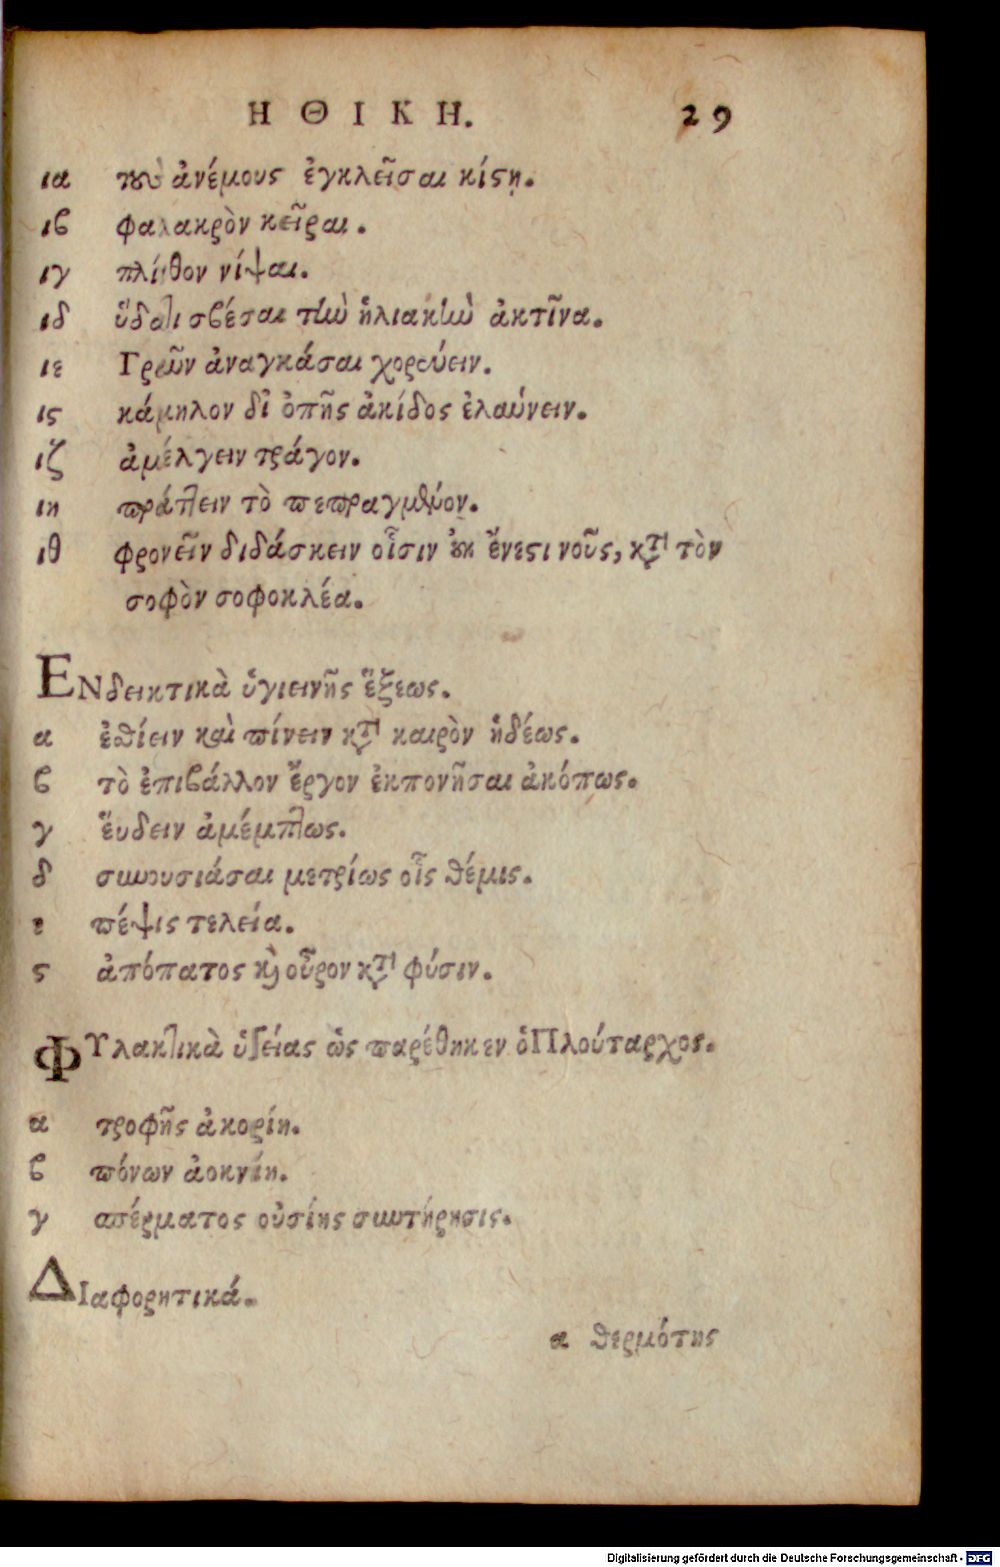 ΗΘΙΚΗ. 29
ια τοὺς ἀνέμους ἐγκλεῖσαι κίστῃ.
ιβ φαλακρὸν κεῖραι.
ιγ πλίνθον νίψαι.
ιδ ὕδατι σβέσαι τὴν ἡλιακὴν ἀκτῖνα.
ιε Γραῦν ἀναγκάσαι χορεύειν.
ις κάμηλον δἰ ὀπῆς ἀκίδος ἐλαύνειν.
ιζ ἀμέλγειν τράγον.
ιη πράττειν τὸ πεπραγμένον.
ιθ φρονεῖν διδάσκειν οἷσιν οὐκ ἔνεστι νοῦς, κατὰ τὸν
σοφὸν σοφοκλέα.
ΕΝδεικτικὰ ὑγιεινῆς ἕξεως.
α ἐσθίειν καὶ πίνειν κατὰ καιρὸν ἡδέως.
β τὸ ἐπιβάλλον ἔργον ἐκπονῆσαι ἀκόπως.
γ ἕυδειν ἀμέμπτως.
δ συνουσιάσαι μετρίως οἷς θέμις.
ε πέψις τελεία.
ς ἀπόπατος καὶ οὖρον κατὰ φύσιν.
ΦΥλακτικὰ ὑγείας ὡς παρέθηκεν ὁ Πλούταρχος.
α τροφῆς ἀκορίη.
β πόνων ἀοκνίη.
γ σπέρματος οὐσίης συντήρησις.
ΔΙαφορητικά.
α θερμότης
Digitalisierung gefördert durch die Deutsche Forschungsgemeinschaft - DFG